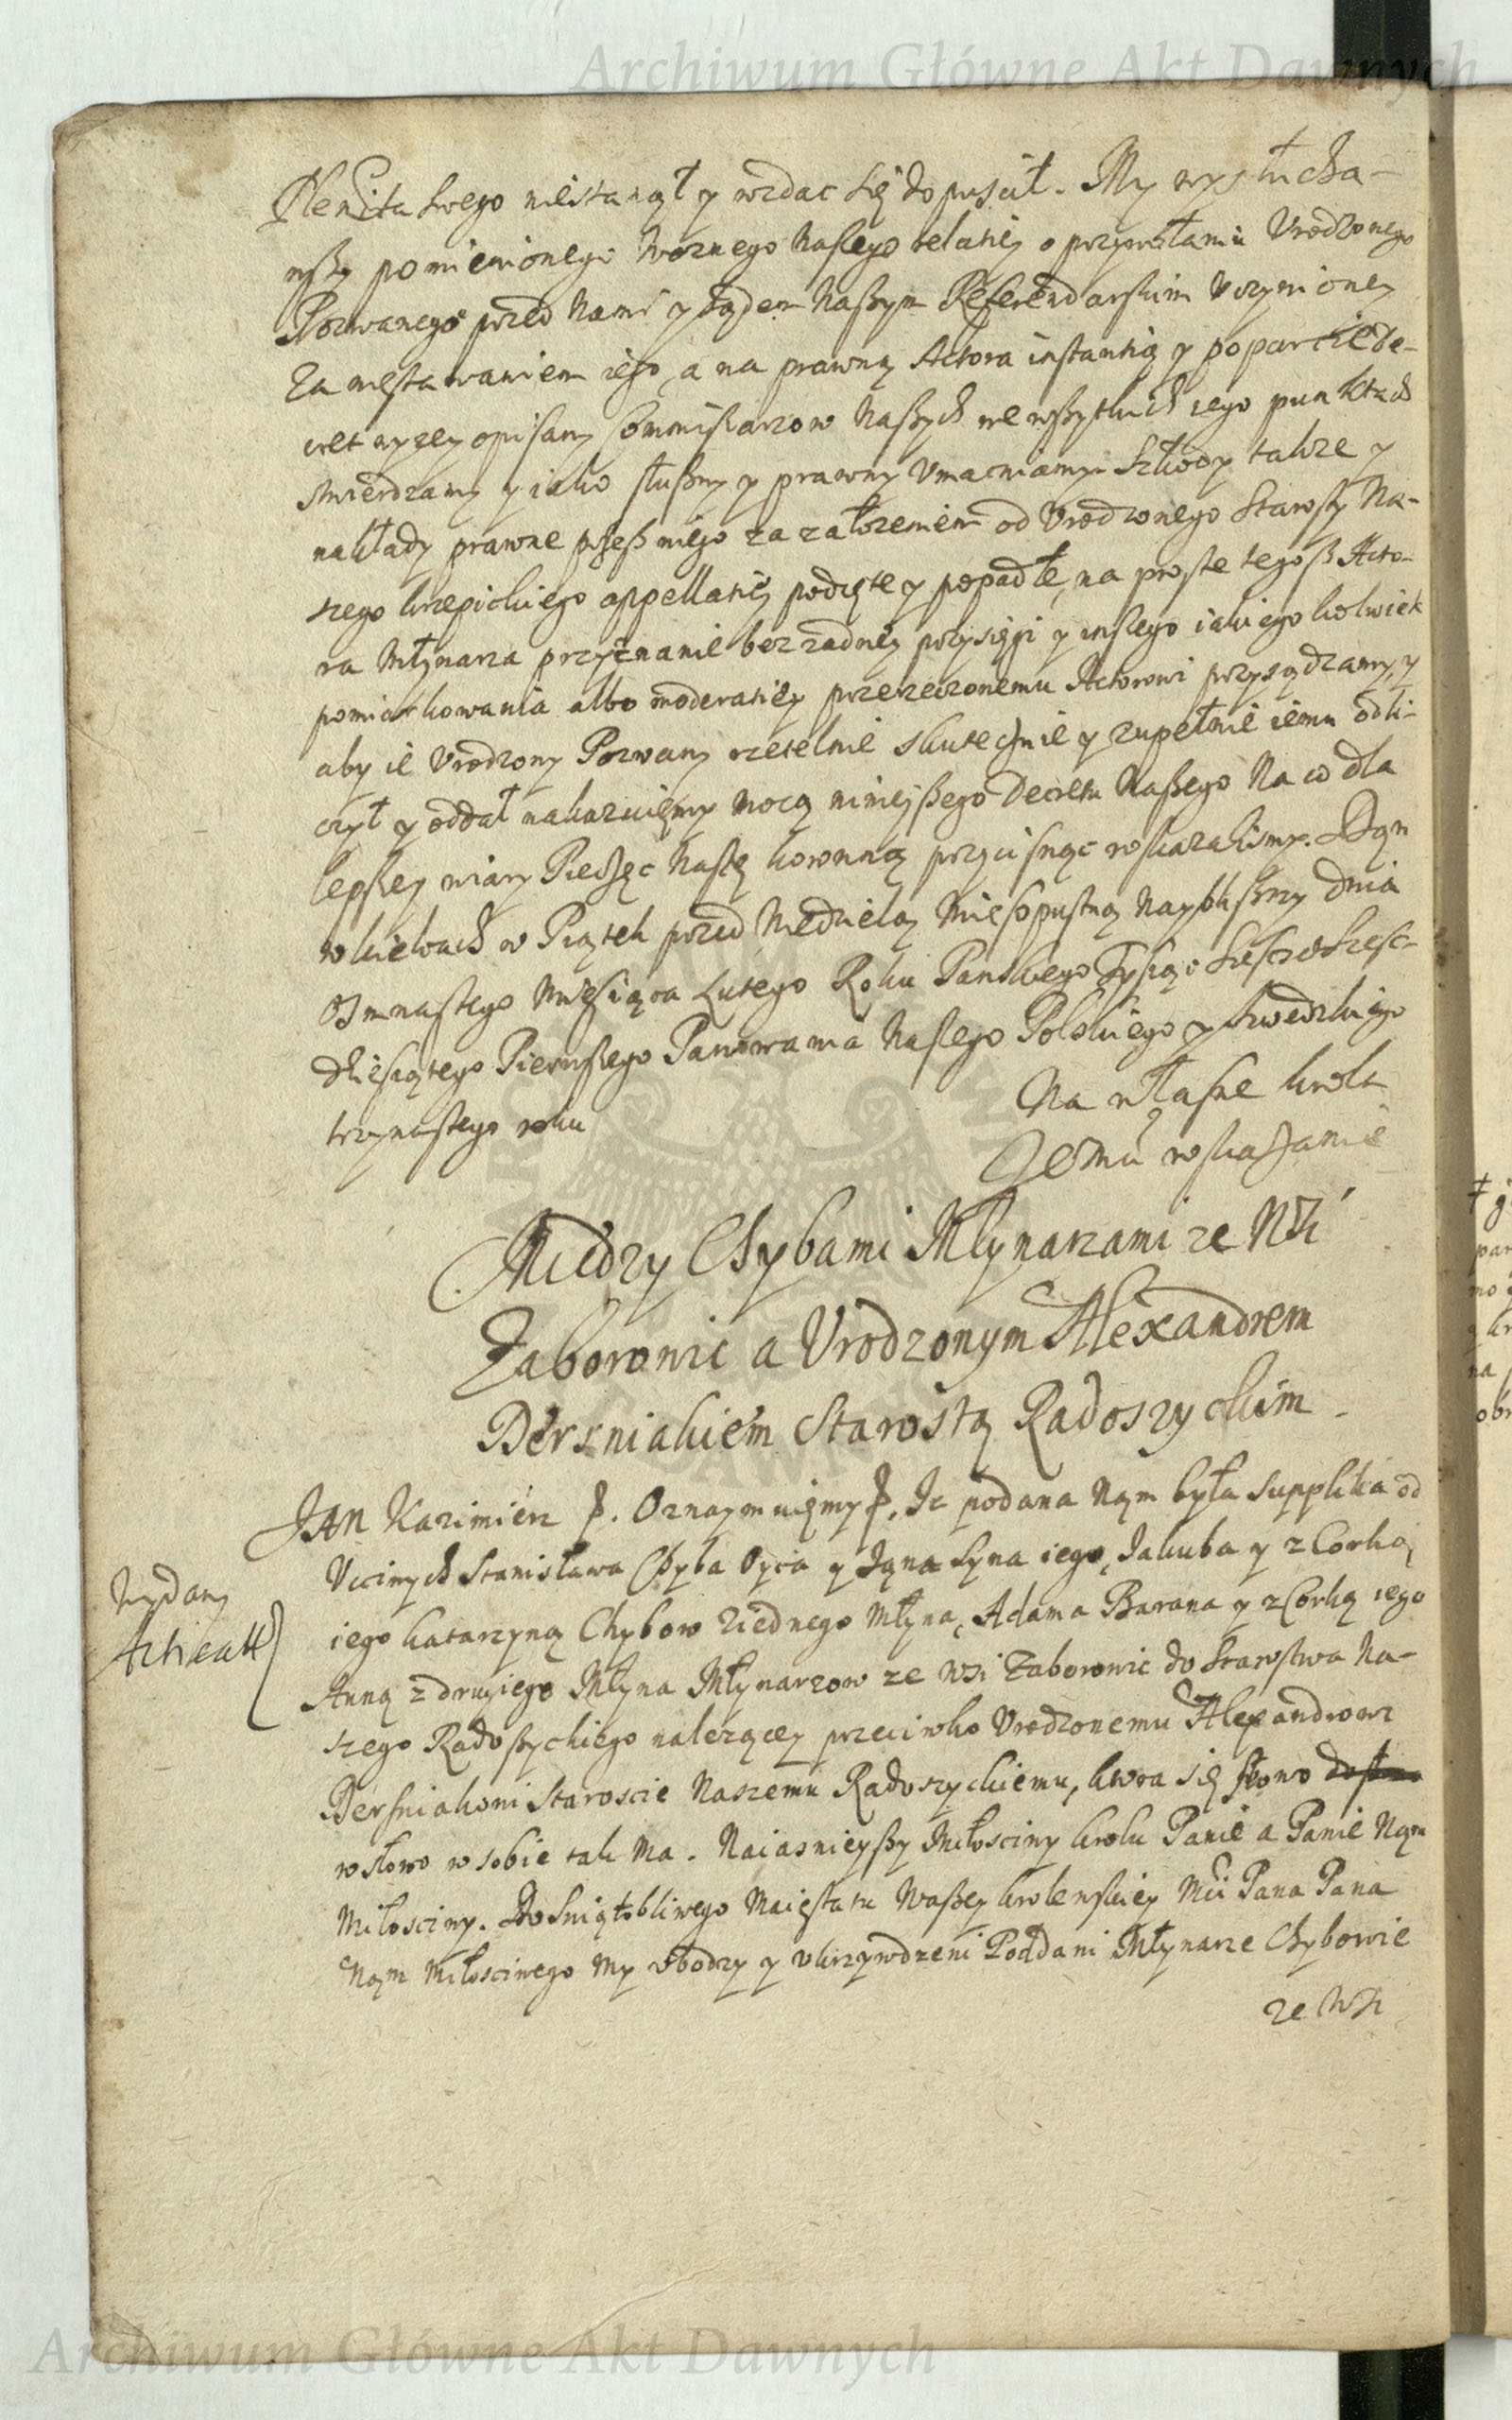 Archiwum Główne Akt Dawnych
Plenita swego niestanął y wzdac się dopuscił. My wysłucha-
wszy pomienionego Woznego Naszego relatiey o przywołaniu Vrodzonego
Pozwanego przed Nami y sądem Naszym Referendarskim Vczynioney
Za niestawaniem iego, a na prawną Actora instantią y poparcie de-
cret wyzey opisany Commissarzow Naszych we wszytkich iego punktach
stwierdzamy y iako słuszny y prawny Vmacniamy. Szkody takze y
nakłady prawne przesz niego za załozeniem od Vrodzonego Starosty Na-
szego krzepickiego appellatiey podięte y popadłe, na proste tegosz Acto-
ra Młynarza przyznanie bez zadney przysięgi y inszego iakiegokolwiek
pomiarkowania albo moderatiey przerzeczonemu Actorowi przysądzamy, y
aby ie Vrodzony Pozwany rzetelnie skutecznie y zupełnie iemu odli-
czył y oddał nakazuięmy mocą ninieyszego Decretu Naszego Na co dla
lepszey wiary Pieczęc Naszę koronną przycisnąc roskazalismy. Dan
w kielcach w Piątek przed Niedzielą Mięsopustną Naybliszszy dnia
Osmnastego Miesiąca Lutego Roku Panskiego Tysiąc Szescset Szesc-
dziesiątego Pierwszego Panowania Naszego Polskiego y Szwedzkiego
trzynastego roku
Na własne krolu
Jeomu roskazanie
Miedzy Chybami Młynarzami ze Wsi
Zaborowic a Vrodzonym Alexandrem
Dersniakiem Starostą Radoszyckim
JAN Kazimierz Oznaymuięmy Iz podana Nąm była supplika od
Vccinych Stanisława Chyba Oyca y Jąna Syna iego, Jakuba y z Corką
iego katarzyną Chybow z iednego Młyna, Adama Barana y z Corką iego
Anną z drugiego Młyna Młynarzow ze Wsi Zaborowic do Starostwa Na-
szego Radoszyckiego nalezącey przeciwko Vrodzonemu Alexandrowi
Dersniakowi Staroscie Naszemu Radoszyckiemu, ktora się słowo
w słowo w sobie tak ma. Naiasnieyszy Miłosciwy krolu Panie a Panie Nąm
Miłosciwy. Do Swiątobliwego Maięstatu Waszey krolewskiey Mci Pana Pana
Nąm Miłosciwego My vbodzy y vkrzywdzeni Poddani Młynarze Chybowie
ze Wsi
Wydany
Archiwum Główne Akt Dawnych